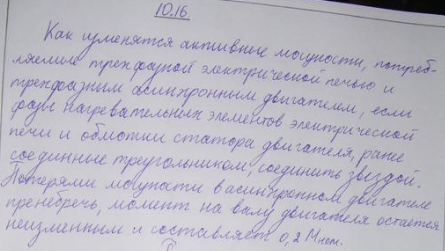 10.16.
Как изменятся активные мощности, потреб-
ляемые трехфазной электрической печью и
трехфазным асинхронным двигателем, если
фазы нагревательных элементов электрической
печи и обмотки статора двигателя, ранее
соединные треугольником, соединить звездой.
Потерями мощности в асинхронном двигателе
пренебречь, момент на валу двигателя остается
неизменным и составляет 0,2 Мном.